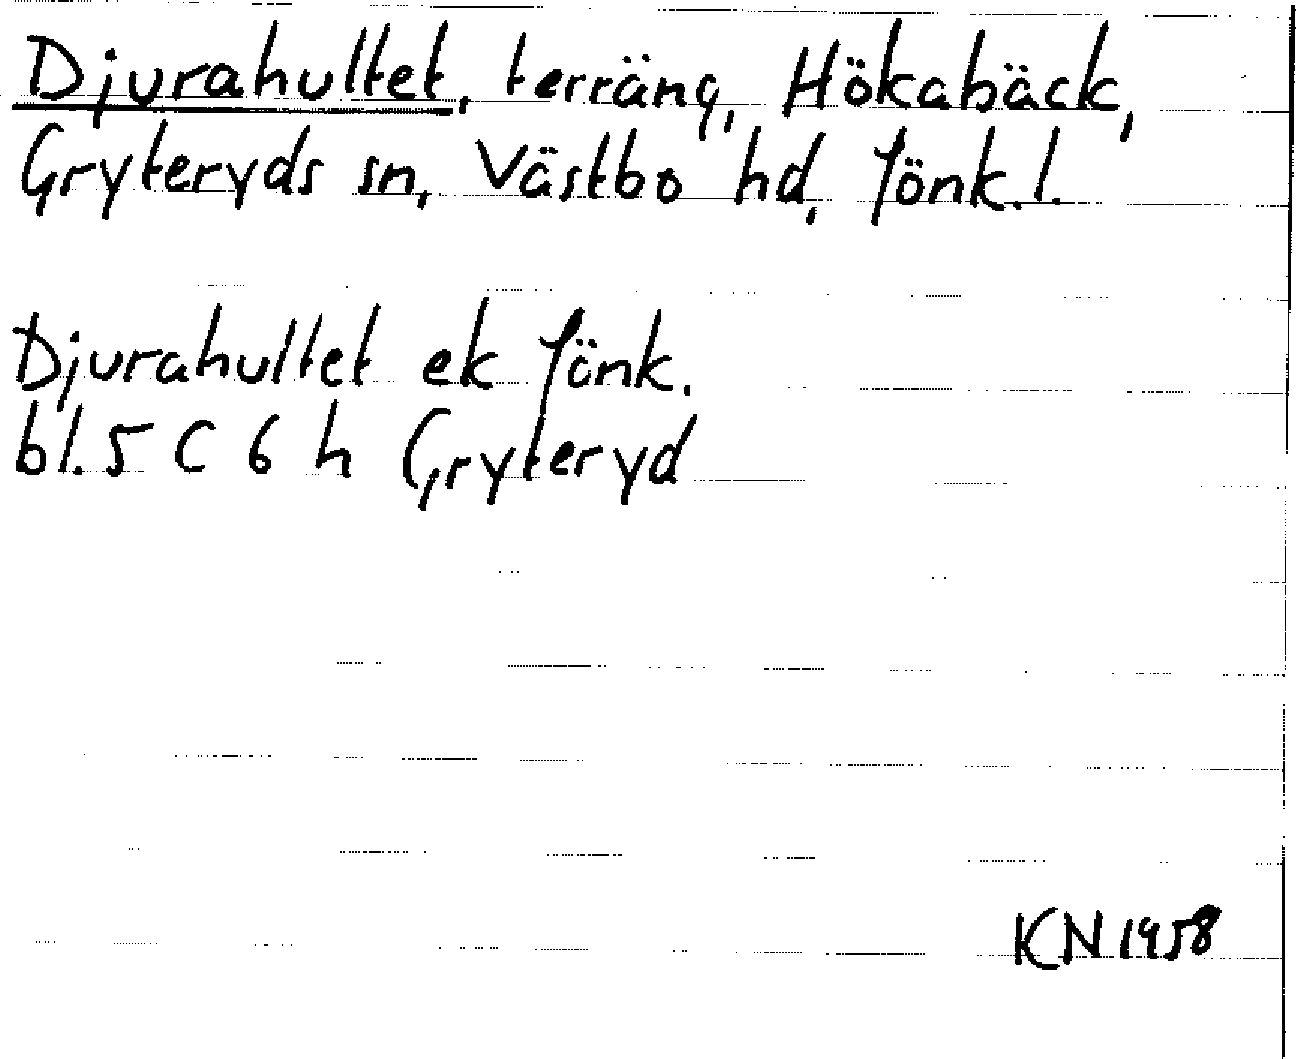 Djurahultet, terräng, Hökabäck,
Gryteryds sn, Västbo hd, Jönk.l.
Djurahultet ek Jönk.
bl. 5 C 6 h Gryteryd
KN 1958